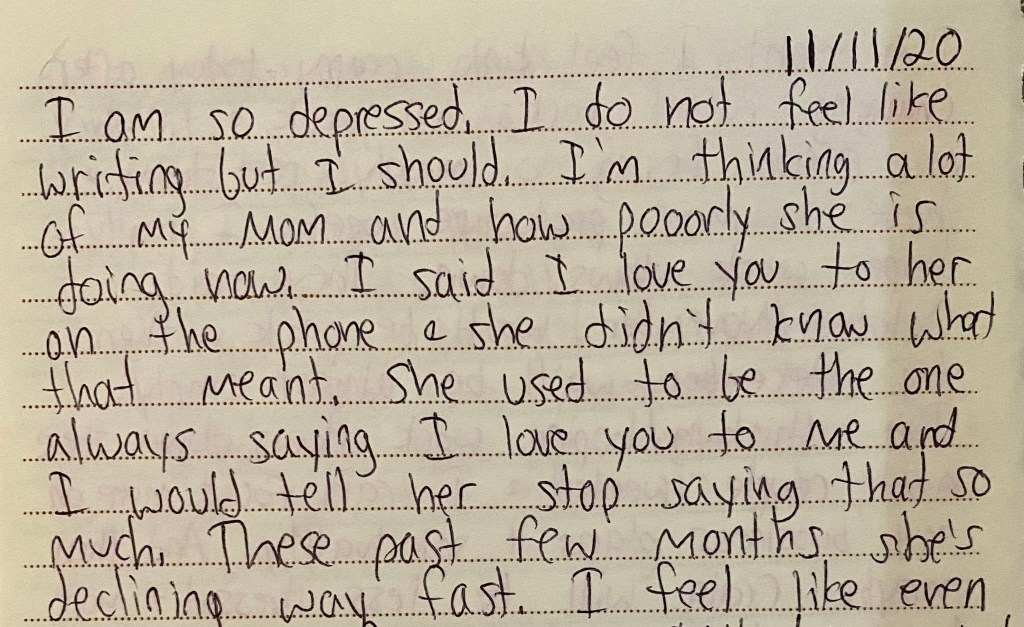 11/11/20
I am so depressed. I do not feel like
writing but I should. I'm thinking a lot
of my Mom and how pooorly she is
doing now. I said I love you to her
on the phone & she didn't know what
that meant. She used to be the one
always saying I love you to me and
I would tell her stop saying that so
much. These past few months she's
declining way fast. I feel like even